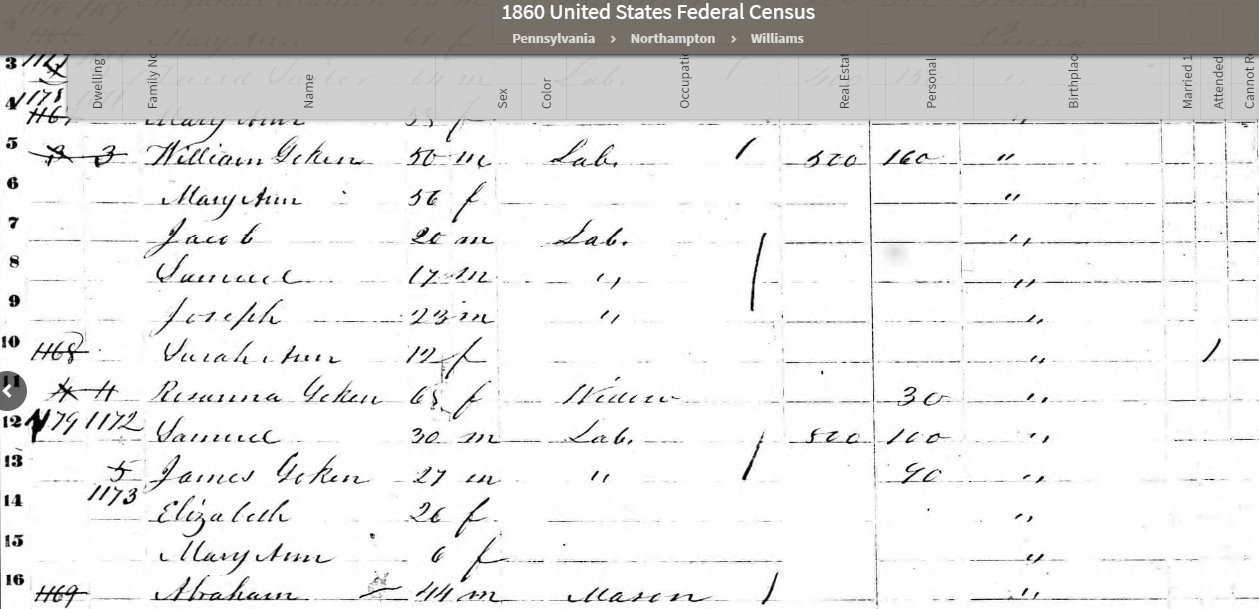 1860 United States Federal Census
Pennsylvania > Northampton > Williams
Dwelling Family No Name Sex Color Occupati Real Estat Personal Birthplac Married 1 Attended Cannot R
2 Mary Ann 61 f
3 64 m Lab.
4 Mary Ann f "
5 3 William Geken 50 m Lab. / 500 160 "
6 Mary Ann 56 f "
7 Jacob 20 m Lab. "
8 Samuel 17 m " "
9 Joseph 23 m " "
10 1168 Sarah Ann 12 f " /
11 4 4 Rosanna Geken 65 f Widow 30 "
12 1179 1172 Samuel 30 m Lab. 500 100 "
13 5 James Geken 27 m " 40 "
1173
14 Elizabeth 26 f "
15 Mary Ann 6 f "
16 1169 Abraham 44 m Mason / "